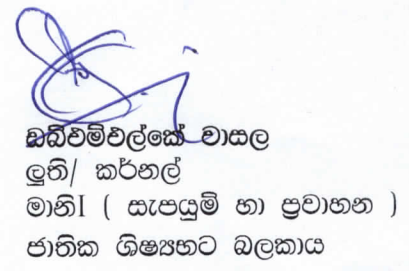 ඩබ්එම්එල්කේ වාසල
ලුති/ කර්නල්
මානිI ( සැපයුම් හා ප්‍රවාහන )
ජාතික ශිෂ්‍යභට බලකාය